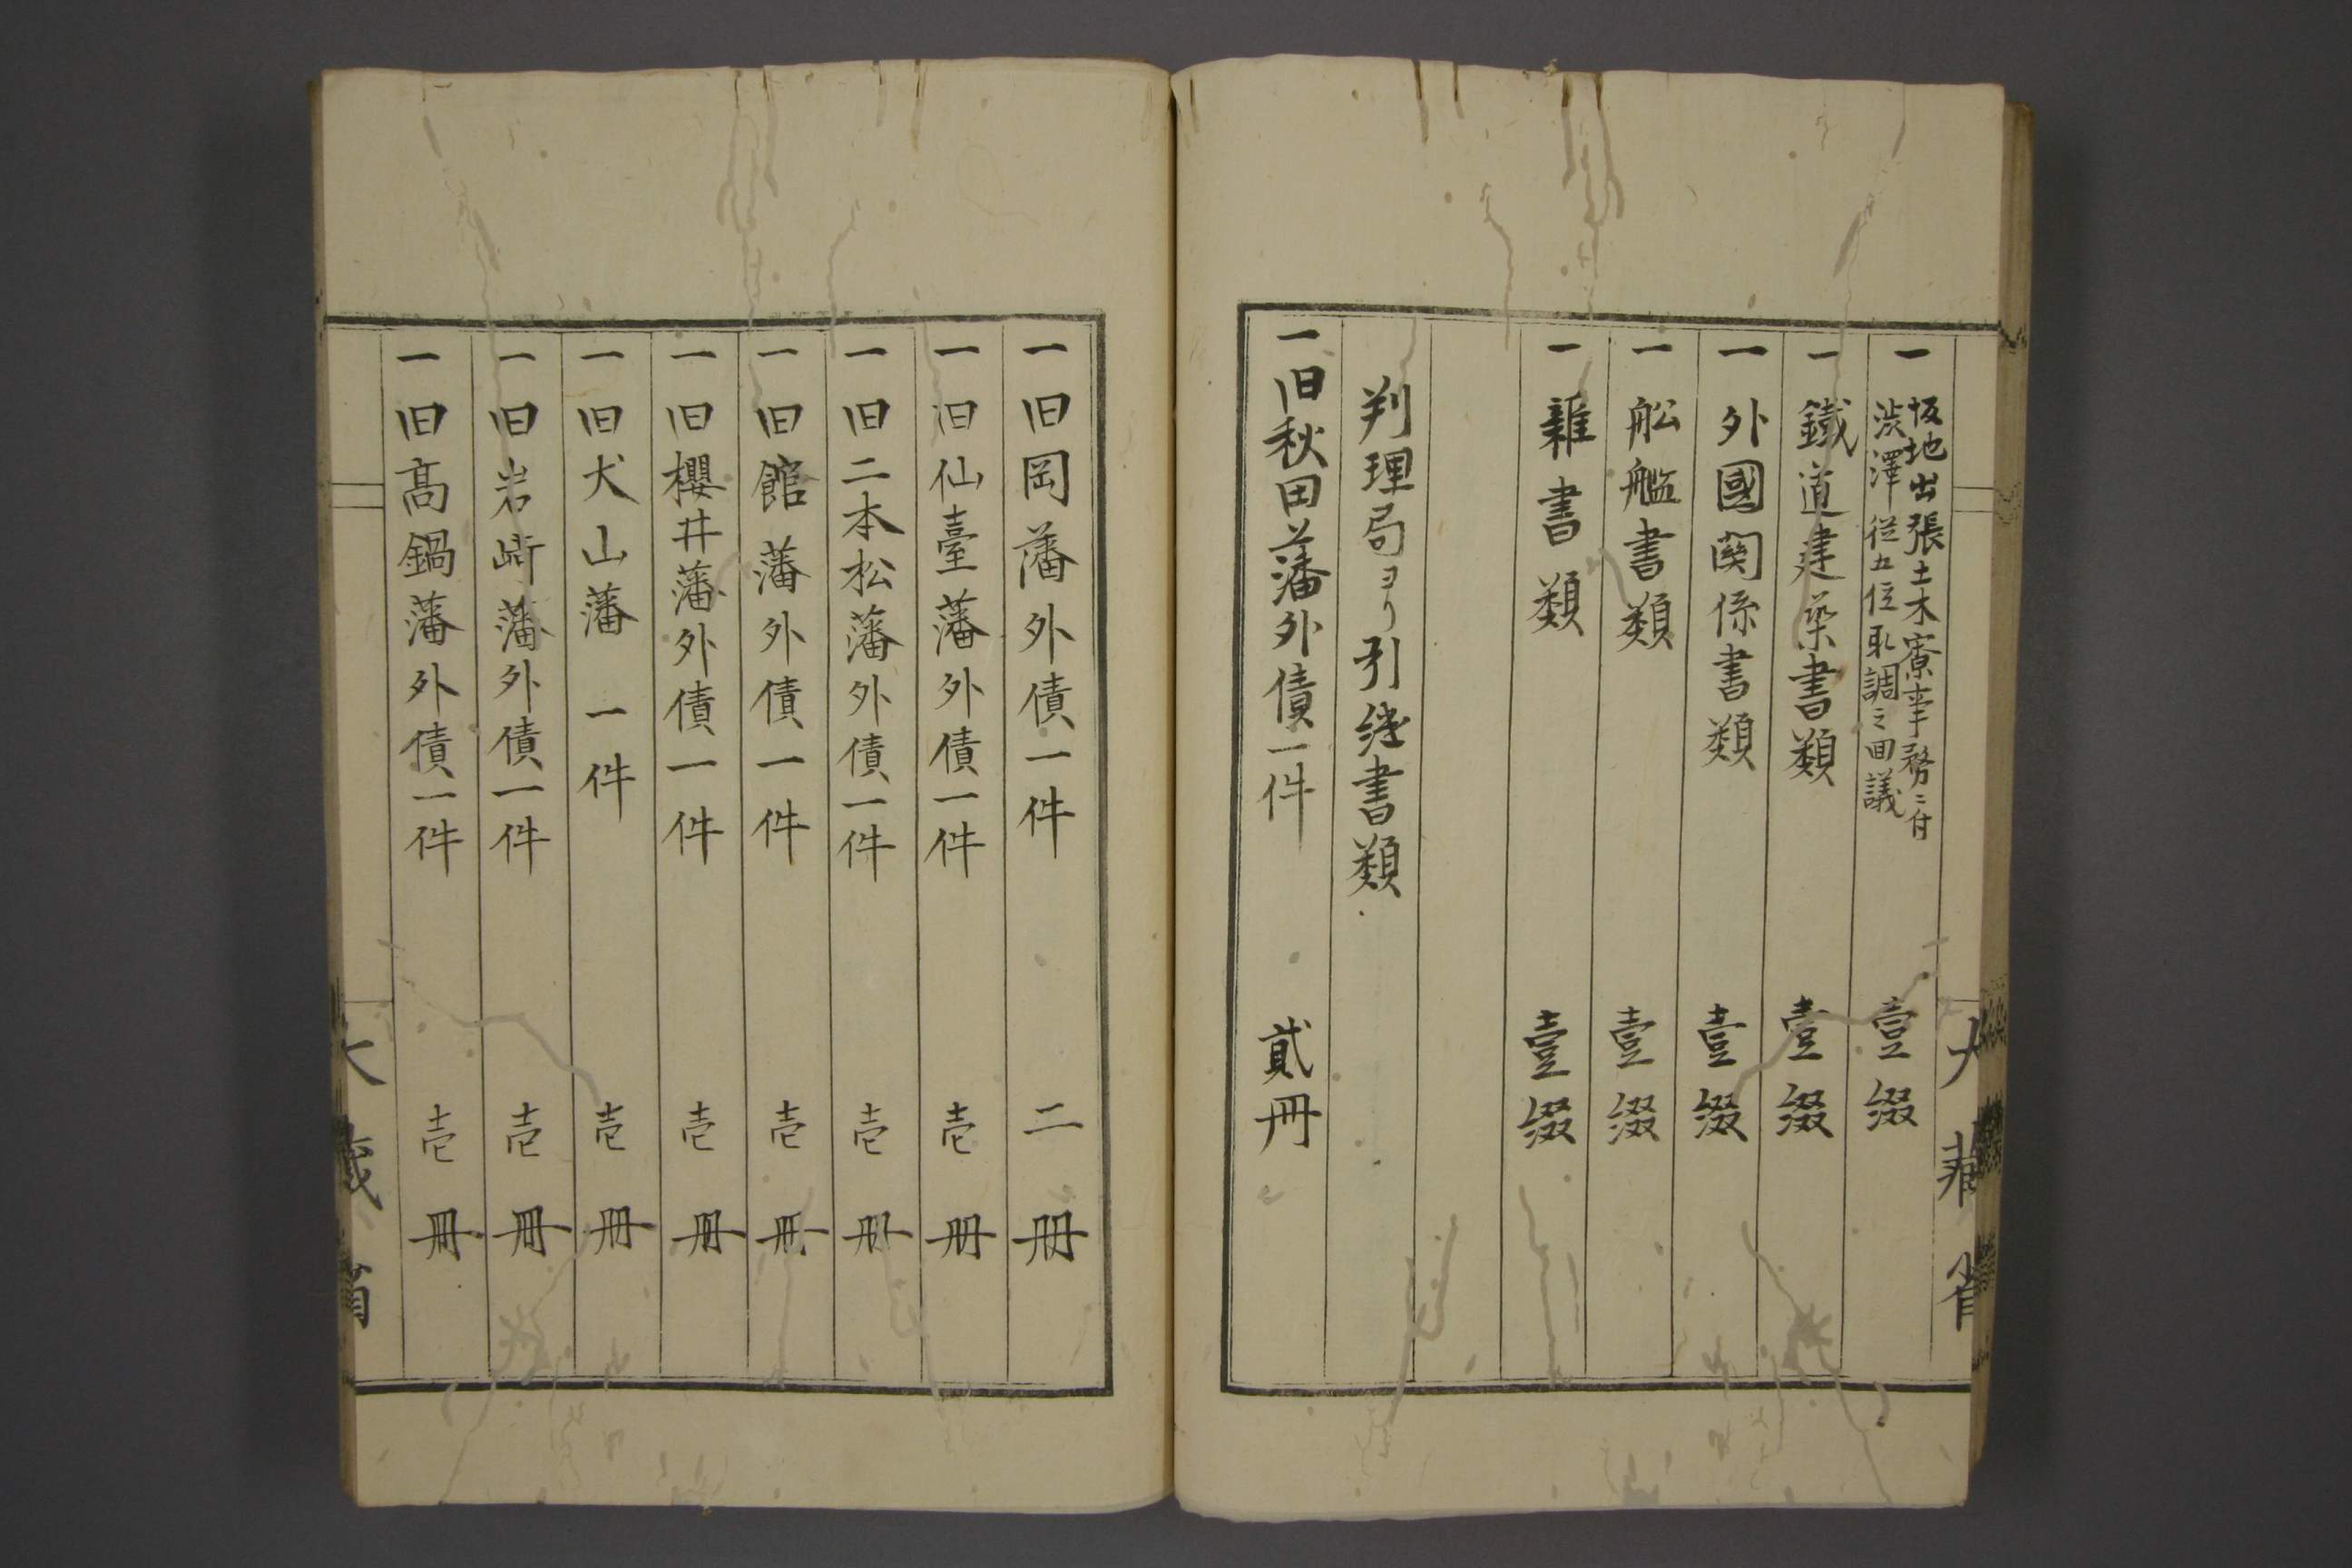 一 坂地出張土木寮事務ニ付
渋澤従五位取調之回議 壹綴
一 鐵道建築書類 壹綴
一 外國関係書類 壹綴
一 舩艦書類 壹綴
一 雑書類 壹綴
判理局ヨリ引継書類
一 旧秋田藩外債一件 貳冊
大藏省
一 旧岡藩外債一件 二冊
一 旧仙臺藩外債一件 壱冊
一 旧二本松藩外債一件 壱冊
一 旧館藩外債一件 壱冊
一 旧櫻井藩外債一件 壱冊
一 旧犬山藩 一件 壱冊
一 旧岩﨑藩外債一件 壱冊
一 旧髙鍋藩外債一件 壱冊
大藏省